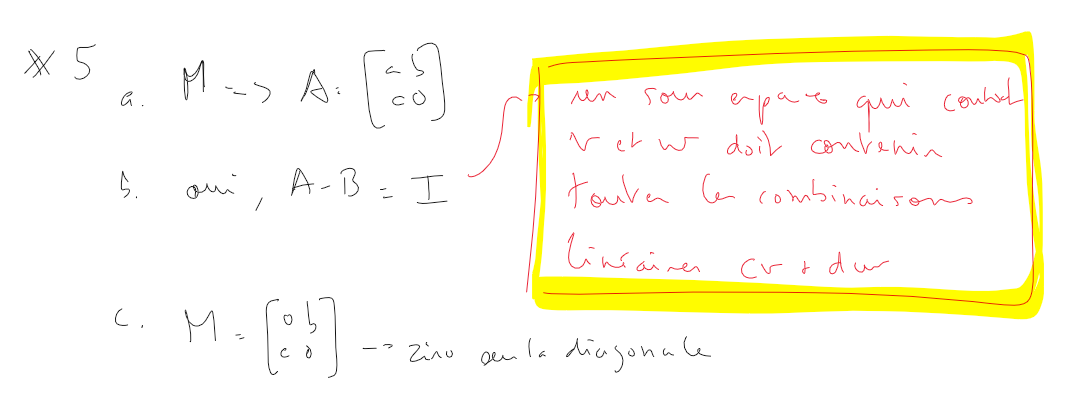 * 5
a. M -> A: [a b
c 0]
b. oui, A-B = I
un sous espace qui contient
v et w doit contenir
toutes les combinaisons
linéaires cv + dw
c. M = [0 b
c 0] -> zéro sur la diagonale